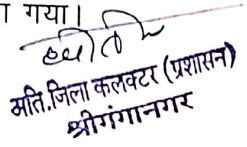 गया।
अति.जिला कलक्टर (प्रशासन)
श्रीगंगानगर